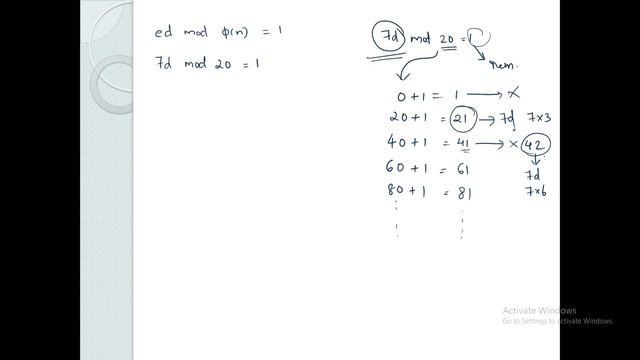 ed mod φ(n) = 1
7d mod 20 = 1
7d mod 20 = 1
rem.
0 + 1 = 1 → ×
20 + 1 = 21 → 7d 7×3
40 + 1 = 41 → × 42
60 + 1 = 61 7d
80 + 1 = 81 7×6
Activate Windows
Go to Settings to activate Windows.